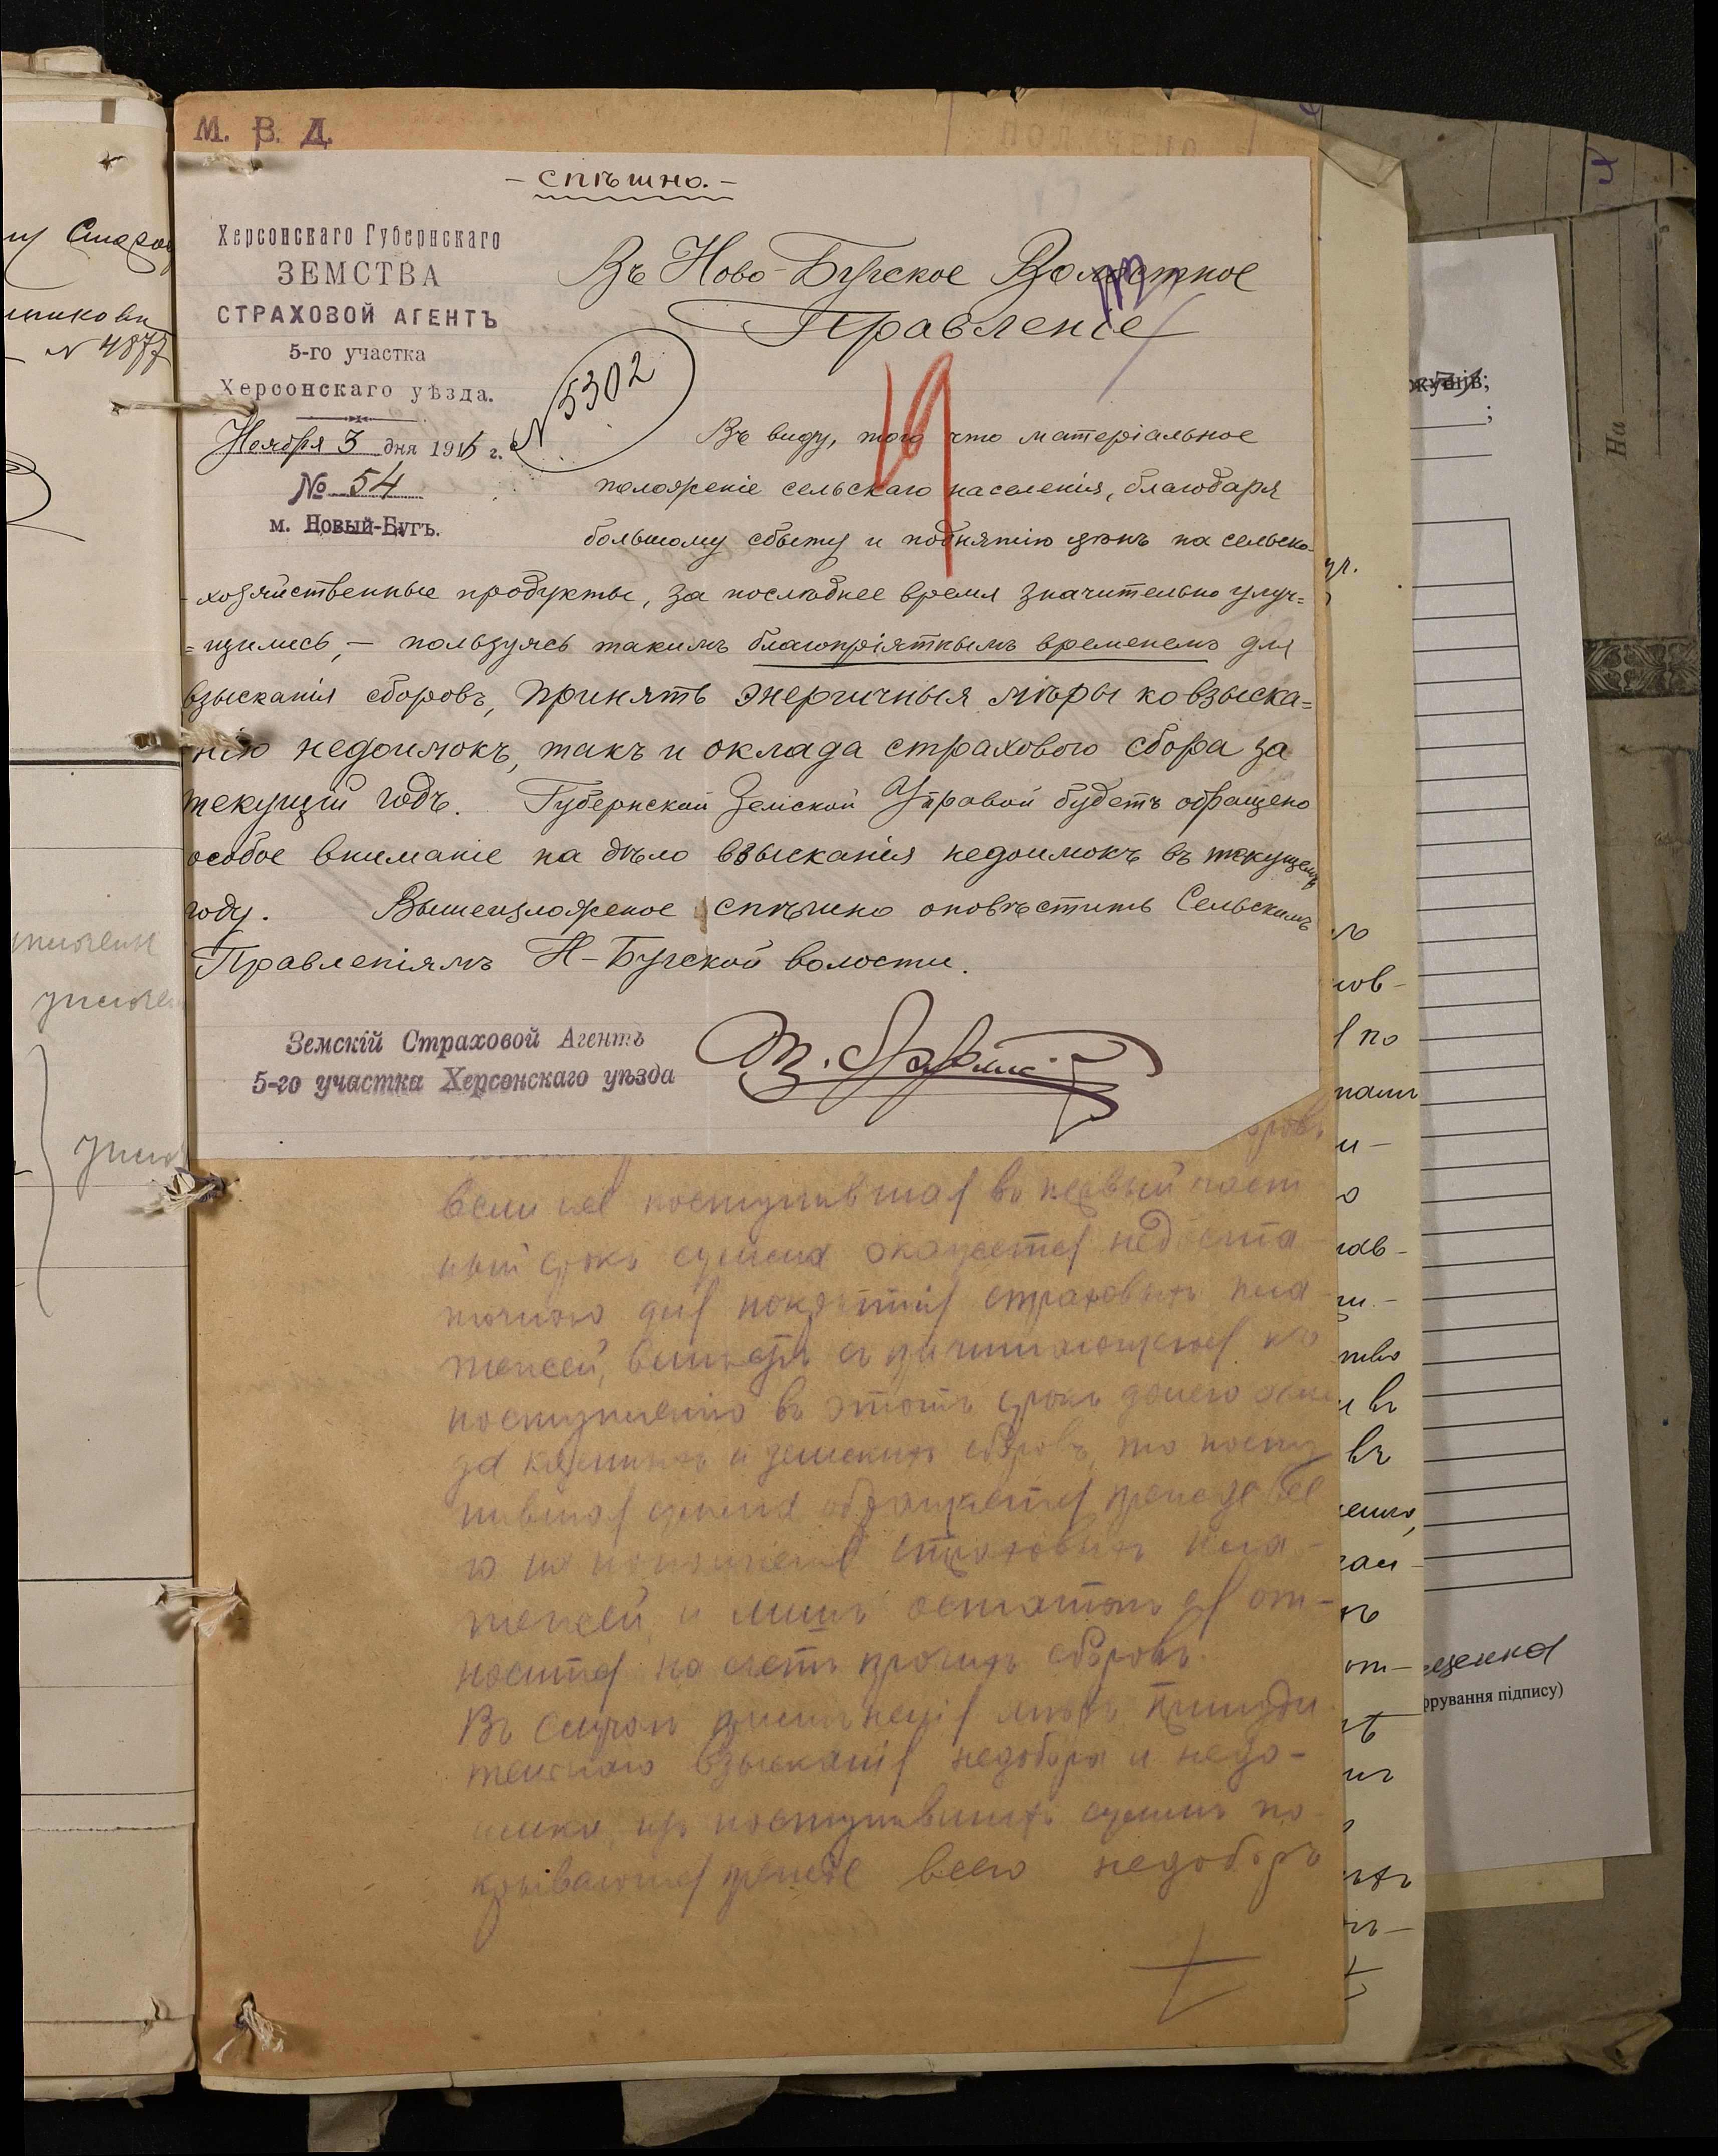 М. В. Д.
- спѣшно. -
Херсонскаго Губернскаго
ЗЕМСТВА
СТРАХОВОЙ АГЕНТЪ
5-го участка
Херсонскаго уѣзда.
Ноября 3 дня 191 г.
№ 54
м. Новый-Бугъ.
Въ Ново-Бугское Волостное
Правленіе
N 5302
19
Въ виду, того что матеріальное
положеніе сельскаго населенія, благодаря
большому сбыту и поднятію цѣнъ на сельско-
хозяйственные продукты, за послѣднее время значительно улуч=
=щились, – пользуясь такимъ благопріятнымъ временемъ для
взысканія сборовъ, принять энергичныя мѣры ко взыска=
нію недоимокъ, такъ и оклада страхового сбора за
текущій годъ. Губернской Земской Управой будетъ обращено
особое вниманіе на дѣло взысканія недоимокъ въ текущемъ
году. Вышеизложеное спѣшно оповѣстить Сельскимъ
Правленіямъ Н-Бугской волости.
Земскій Страховой Агентъ
5-го участка Херсонскаго уѣзда
если же поступившая въ первый част
ный срокъ сумма окажется недоста-
точною для покрытія страховыхъ пла-
тежей, вмѣстѣ съ причитающеюся къ
поступленію въ этотъ срокъ долею окла
да казенныхъ и земскихъ сборовъ, то посту
пившая сумма обращается прежде все
го на пополненіе страховыхъ пла-
тежей и лишь остатокъ ея от-
носится на счетъ прочихъ сборовъ.
Въ случаѣ примѣненія мѣръ принуди
тельнаго взысканія недобора и недо-
имки, изъ поступившихъ суммъ по-
крывается прежде всего недоборъ
N 4877
окупнів;
На
рування підпису)